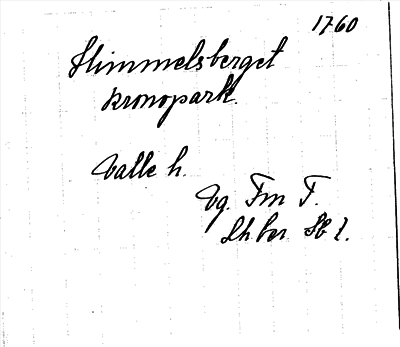 1760
Himmelsberget
kronopark.
Valle h.
Vg. Fm F.